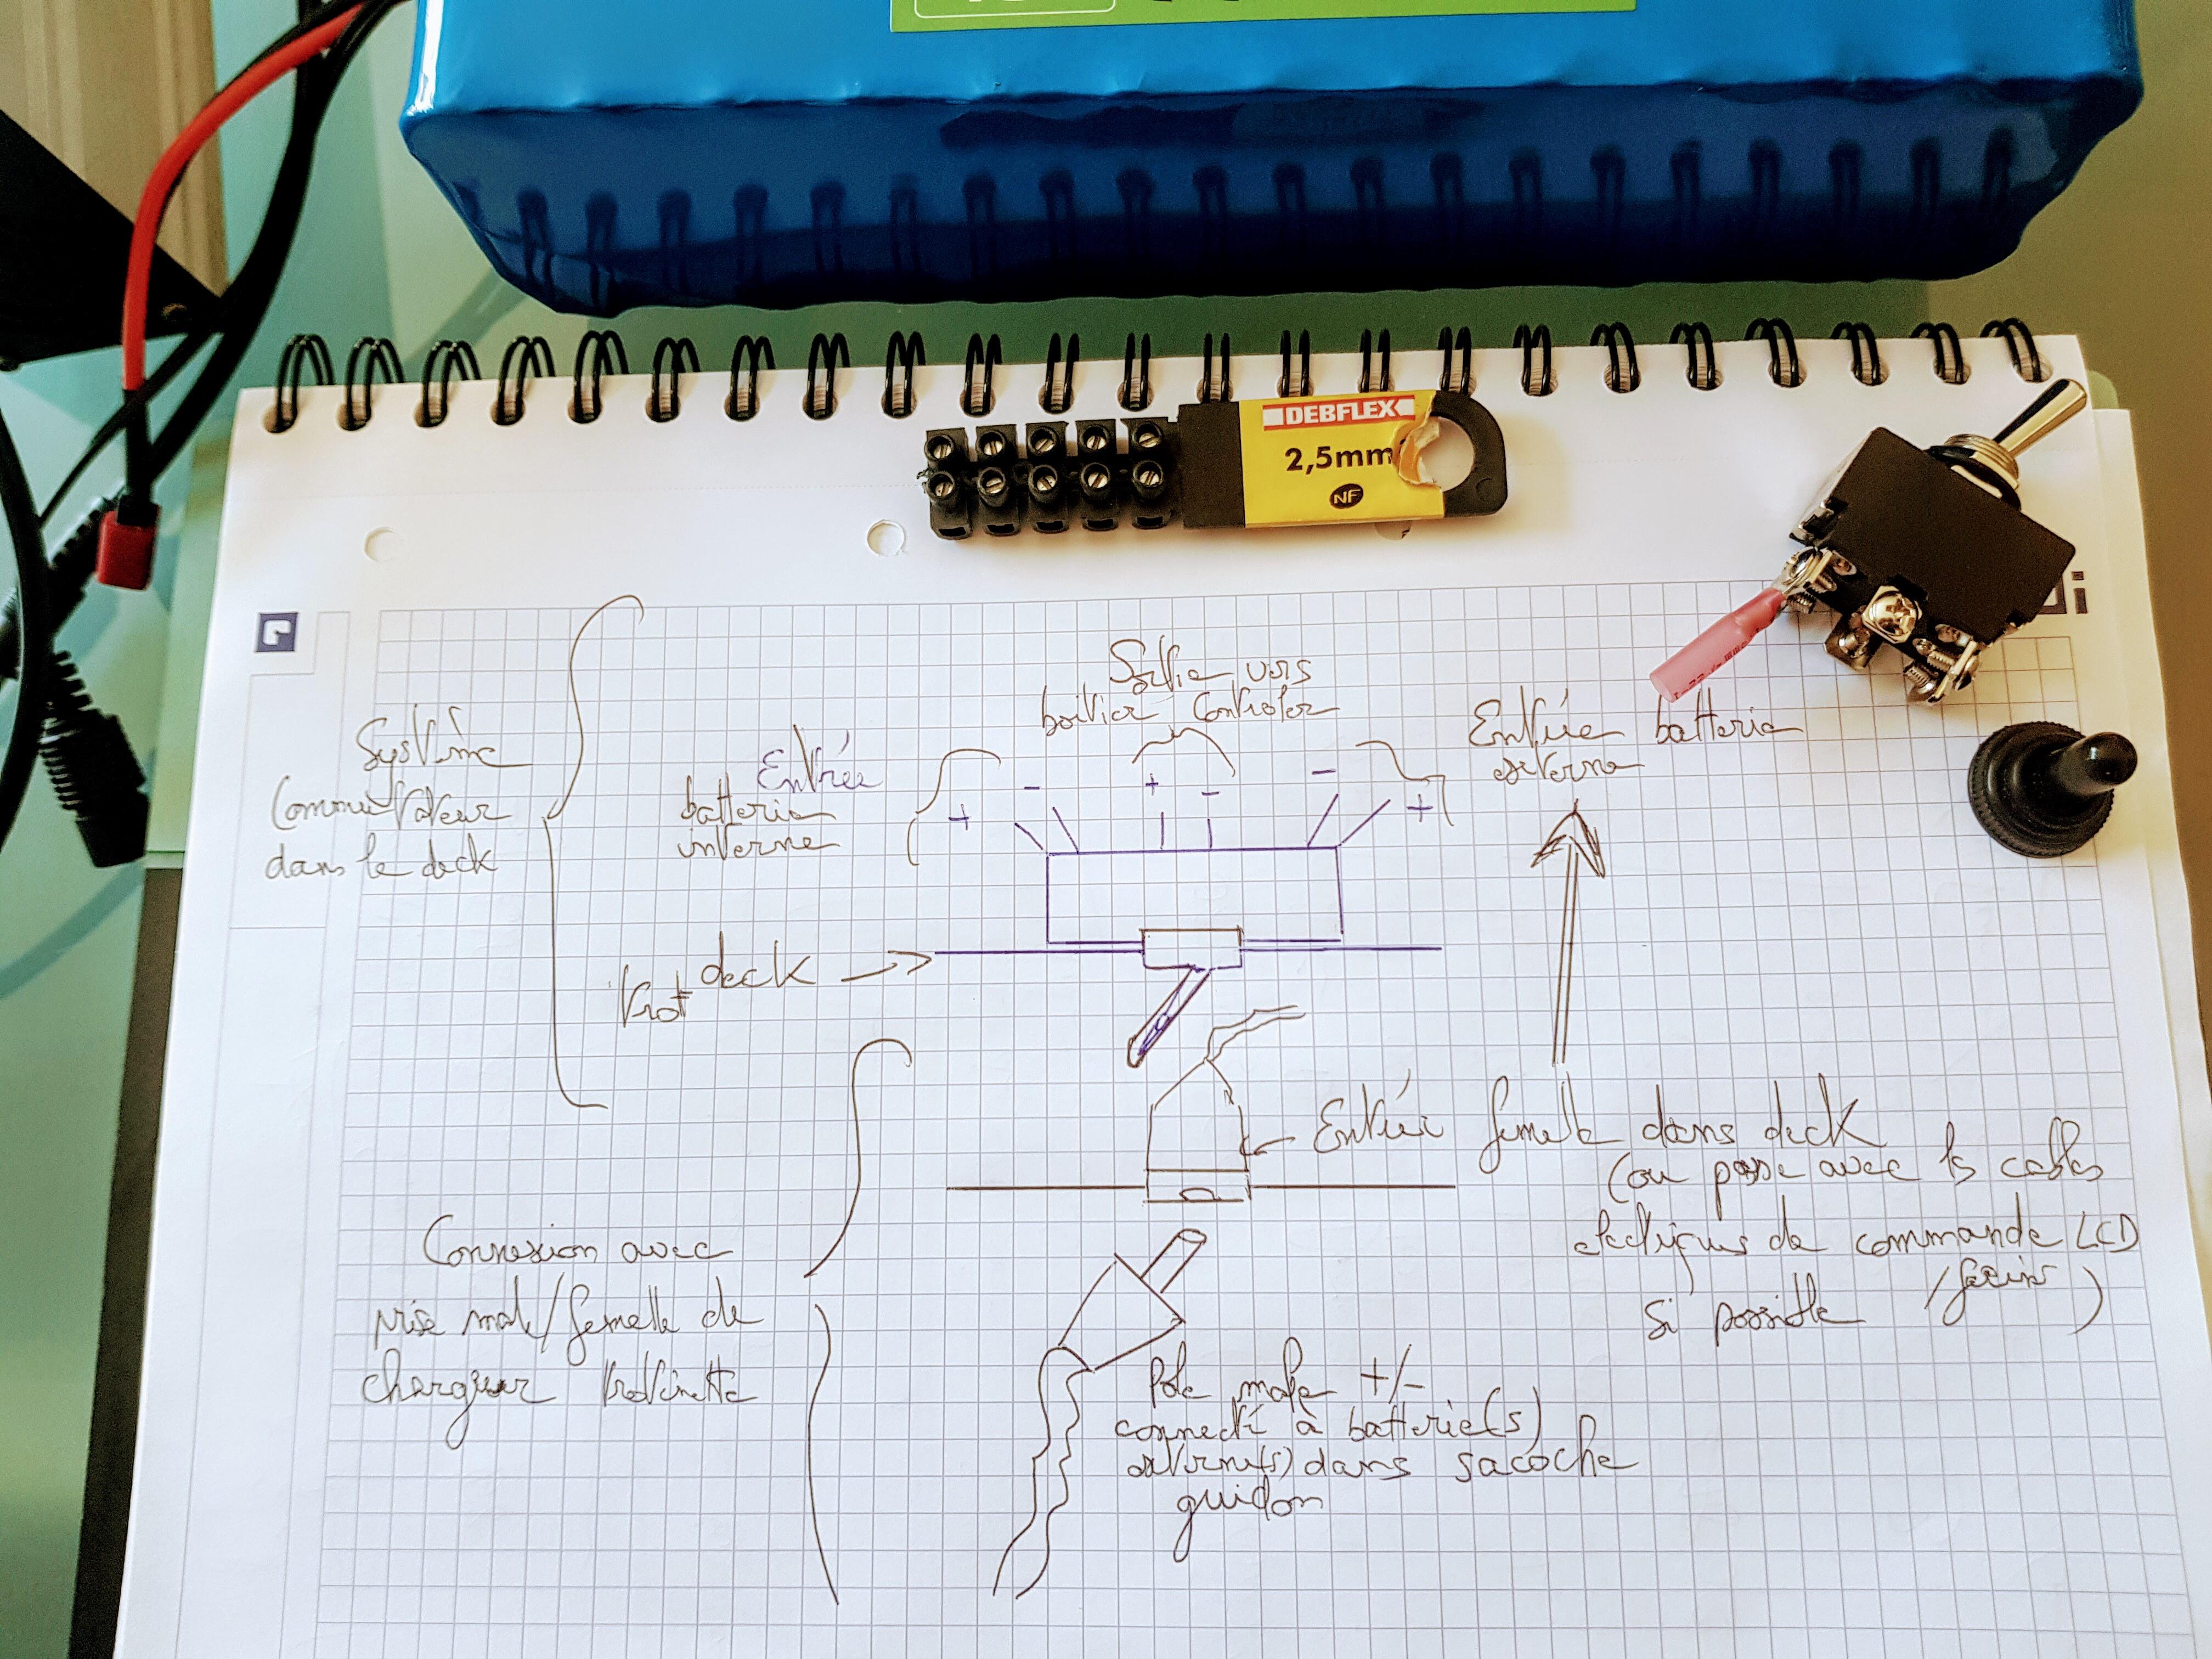 DEBFLEX
2,5mm
NF
Sortie vers
boitier controler
Système
Commutateur
dans le deck
Entrée
batterie
interne
Entrée batterie
externe
+ - + - - +
deck
trot
Entrée femelle dans deck
(ou passe avec les cables
electriques de commande LCD
si possible /freins)
Connexion avec
prise male/femelle de
chargeur trotinette
Pole male +/-
connecté à batterie(s)
externe(s) dans sacoche
guidon